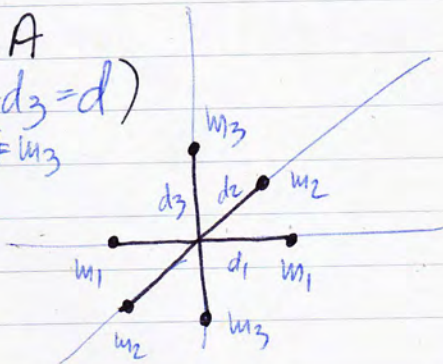 A
d₃=d)
= m₃
m₃
d₃ d₂ m₂
m₁ d₁ m₁
m₂ m₃